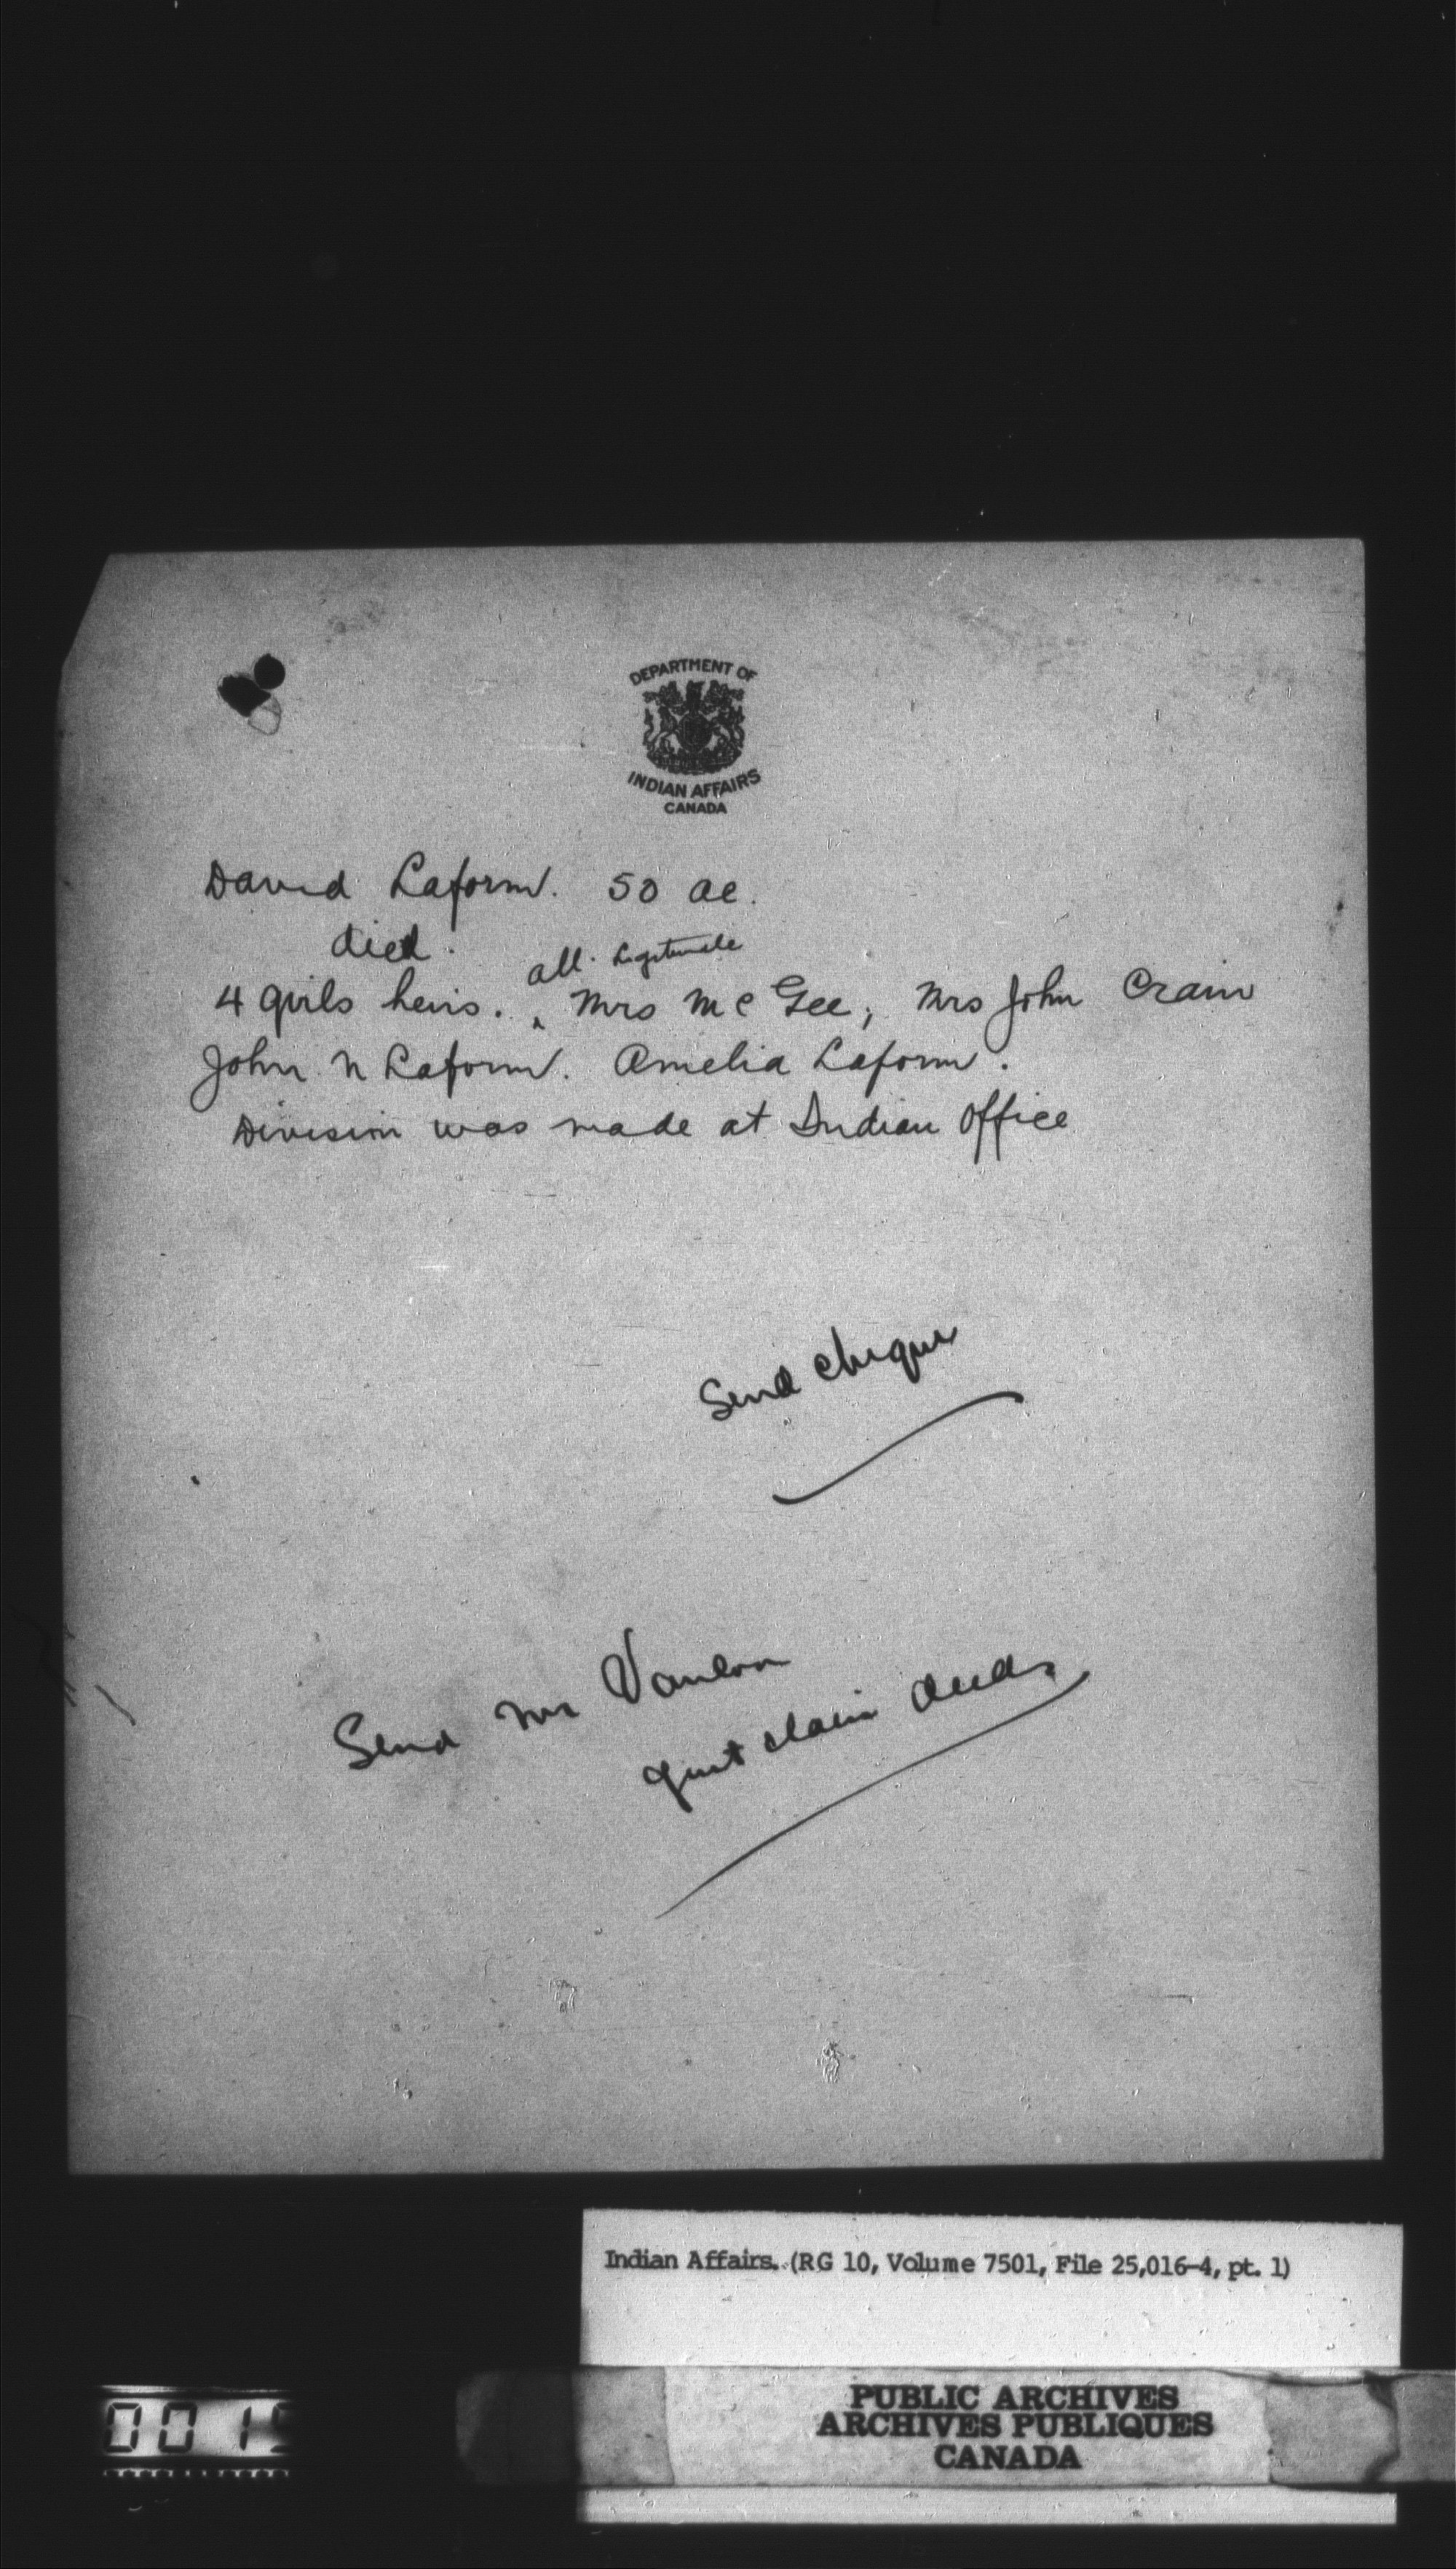 DEPARTMENT OF
INDIAN AFFAIRS
CANADA
David Laform. 50 ac.
died.
all. Legitimate
4 girls heirs. ‸ Mrs McGee, Mrs John Crain
John N Laform. Amelia Laform.
Division was made at Indian Office
Send cheque
Send Mr Vanloon
quit claim deeds
Indian Affairs. (RG 10, Volume 7501, File 25,016-4, pt. 1)
PUBLIC ARCHIVES
ARCHIVES PUBLIQUES
CANADA